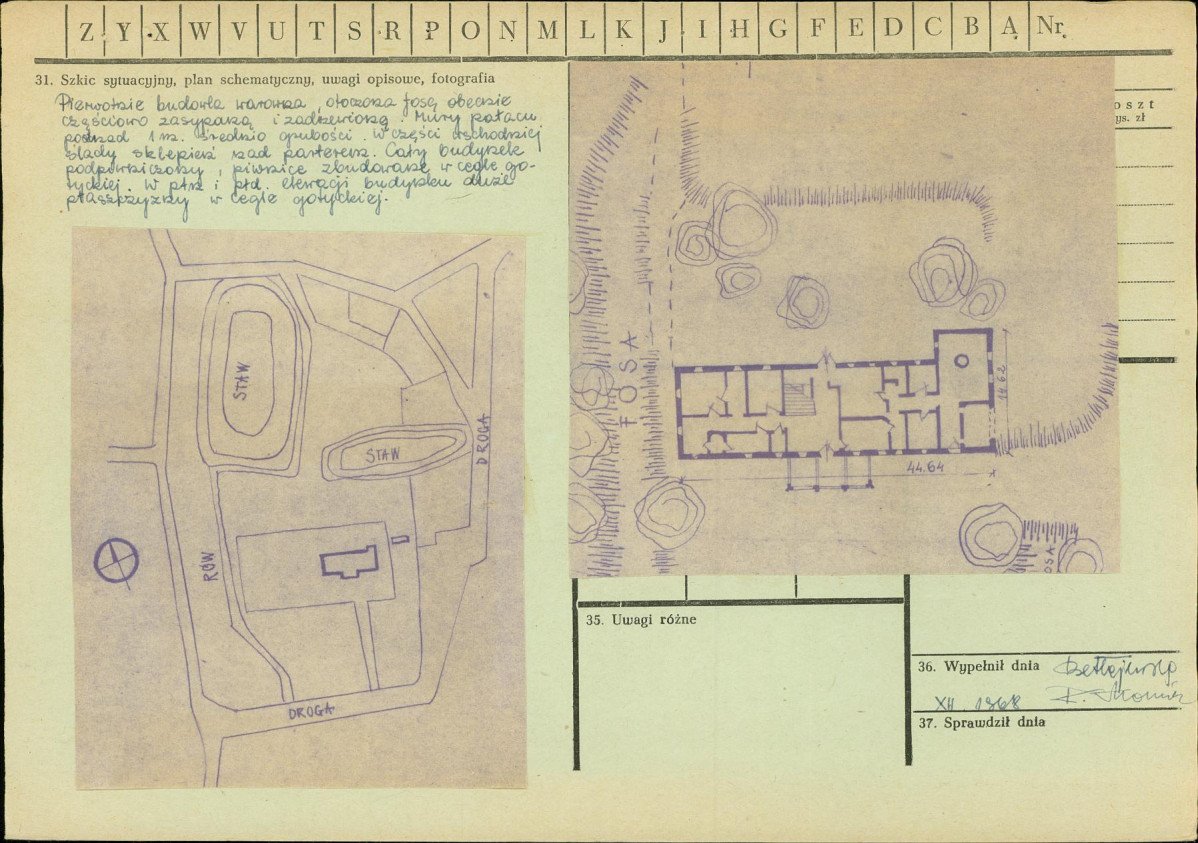 Z Y X W V U T S R P O N M L K J I H G F E D C B A Nr.
31. Szkic sytuacyjny, plan schematyczny, uwagi opisowe, fotografia
Pierwotnie budowla warowna, otoczona fosą obecnie
częściowo zasypaną i zadrzewioną. Mury pałacu
ponad 1 m. średnio grubości. W części wschodniej
ślady sklepień nad parterem. Cały budynek
podpiwniczony, piwnice zbudowane w cegle go-
tyckiej. W płn i płd. elewacji budynku duże
płaszczyzny w cegle gotyckiej.
oszt
ys. zł
STAW
STAW
DROGA
RÓW
DROGA
FOSA
14.62
44.64
OSA
35. Uwagi różne
36. Wypełnił dnia
XII. 1968
37. Sprawdził dnia